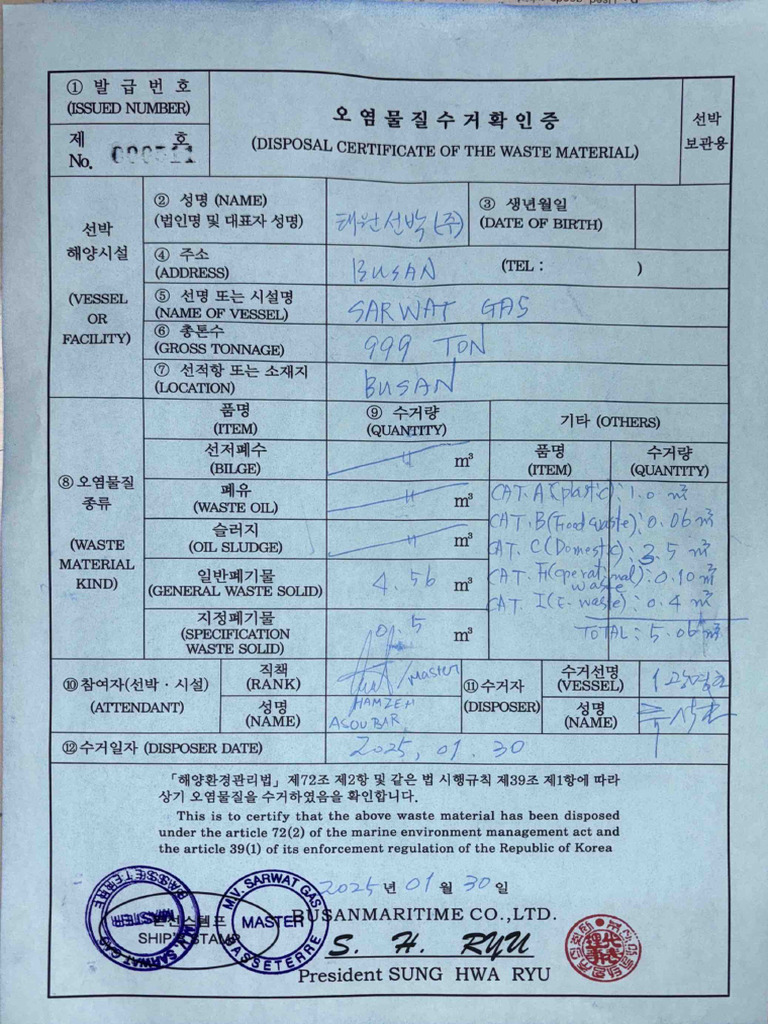 ① 발 급 번 호
(ISSUED NUMBER)
제 호
No. 000511
오염물질수거확인증
(DISPOSAL CERTIFICATE OF THE WASTE MATERIAL)
선박
보관용
선박
해양시설
(VESSEL
OR
FACILITY)
② 성명 (NAME)
(법인명 및 대표자 성명)
태원선박(주)
③ 생년월일
(DATE OF BIRTH)
④ 주소
(ADDRESS)
BUSAN
(TEL : )
⑤ 선명 또는 시설명
(NAME OF VESSEL)
SARWAT GAS
⑥ 총톤수
(GROSS TONNAGE)
999 TON
⑦ 선적항 또는 소재지
(LOCATION)
BUSAN
⑧ 오염물질
종류
(WASTE
MATERIAL
KIND)
품명
(ITEM)
⑨ 수거량
(QUANTITY)
기타 (OTHERS)
선저폐수
(BILGE)
〃 m³
품명
(ITEM)
수거량
(QUANTITY)
폐유
(WASTE OIL)
〃 m³
슬러지
(OIL SLUDGE)
〃 m³
일반폐기물
(GENERAL WASTE SOLID)
4.56 m³
지정폐기물
(SPECIFICATION
WASTE SOLID)
0.5 m³
CAT. A (plastic) : 1.0 m³
CAT. B (Food waste) : 0.06 m³
CAT. C (Domestic) : 3.5 m³
CAT. F (operational waste) : 0.10 m³
CAT. I (E-waste) : 0.4 m³
TOTAL : 5.06 m³
⑩ 참여자(선박 · 시설)
(ATTENDANT)
직책
(RANK)
/master
성명
(NAME)
HAMZEH
ASOUBAR
⑪ 수거자
(DISPOSER)
수거선명
(VESSEL)
성명
(NAME)
⑫ 수거일자 (DISPOSER DATE)
2025, 01. 30
「해양환경관리법」 제72조 제2항 및 같은 법 시행규칙 제39조 제1항에 따라
상기 오염물질을 수거하였음을 확인합니다.
This is to certify that the above waste material has been disposed
under the article 72(2) of the marine environment management act and
the article 39(1) of its enforcement regulation of the Republic of Korea
2025 년 01 월 30 일
본선스템프
SHIP'S STAMP
M.V. SARWAT GAS
MASTER
BASSETERRE
M.V. SARWAT GAS
MASTER
BASSETERRE
BUSANMARITIME CO.,LTD.
S. H. RYU
President SUNG HWA RYU